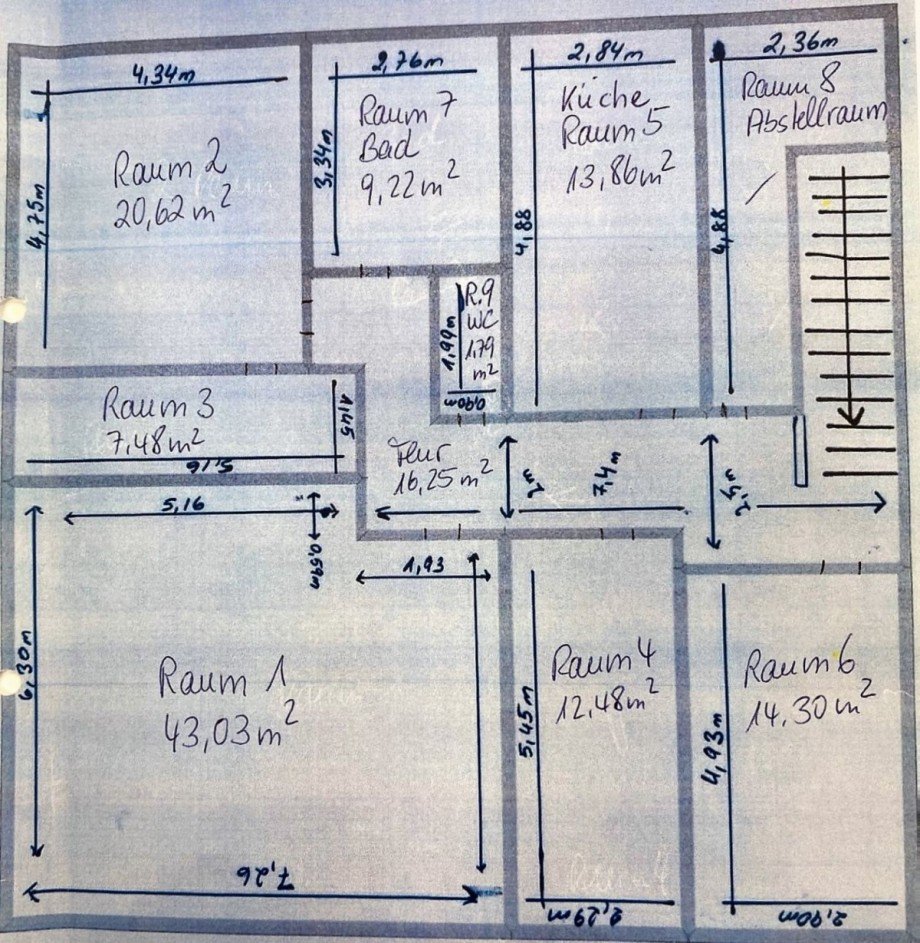 4,34m
4,75m
Raum 2
20,62 m²
2,76m
3,34m
Raum 7
Bad
9,22 m²
2,84m
4,88
Küche
Raum 5
13,86m²
2,36m
4,88
Raum 8
Abstellraum
R.9
WC
1,79
m²
1,99m
0,90m
Raum 3
7,48m²
1,45
5,16
Flur
16,25 m²
2m
7,4m
2,5m
5,16
0,59m
1,93
6,30m
Raum 1
43,03 m²
7,26
Raum 4
12,48m²
5,45m
2,29m
Raum 6
14,30 m²
4,93m
2,90m